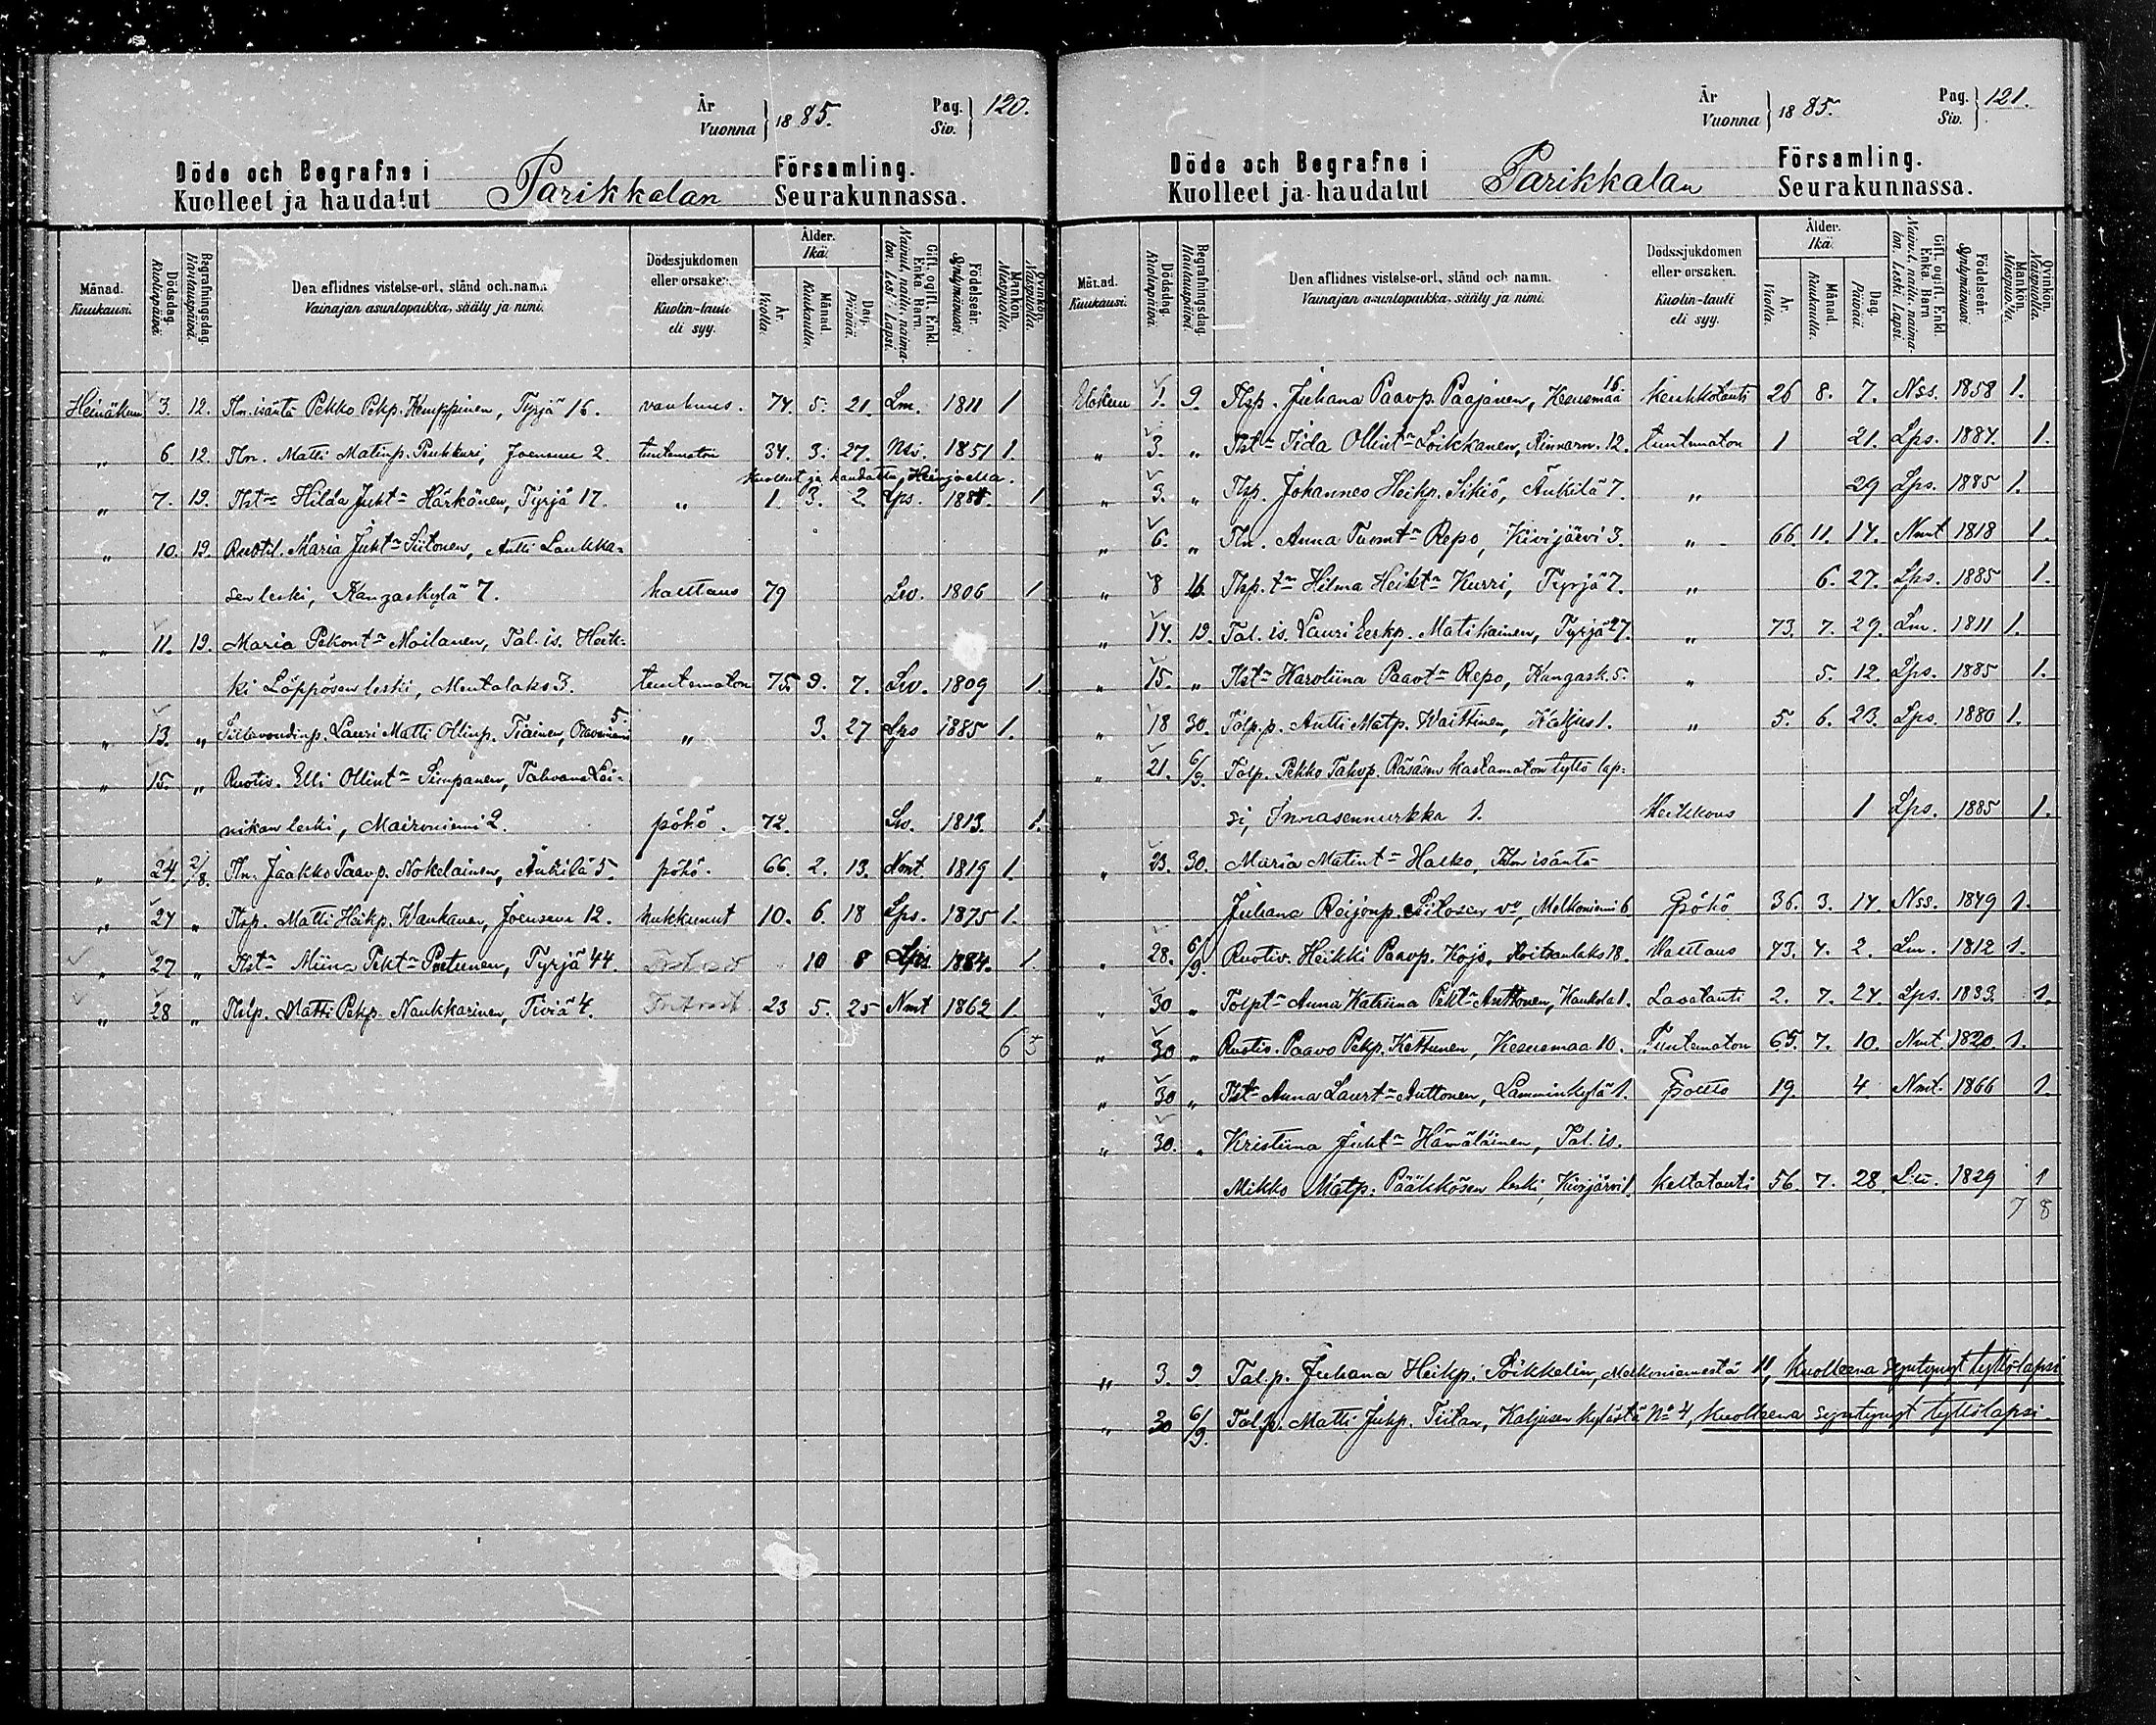 År
Vuonna } 1885.
Pag.
Siv. } 120.
Döde och Begrafne i
Kuolleet ja haudatut
Parikkalan
Församling.
Seurakunnassa.
Månad. Kuukausi.
Dödsdag. Kuolinpäivä.
Begrafningsdag. Hautauspäivä.
Den aflidnes vistelse-ort, stånd och namn.
Vainajan asuntopaikka, sääty ja nimi.
Dödssjukdomen eller orsaken.
Kuolin-tauti eli syy.
Ålder. Ikä.
År. Vuotta.
Månad. Kuukautta.
Dag. Päivää.
Gift, ogift, Enkl. Enka. Barn.
Nainut, natu, naimaton. Leski. Lapsi.
Födelseår. Syntymävuosi.
Mankön. Miespuolia.
Qvinkön. Naispuolia.
Heinäkuu 3. 12. Tln. isäntä Pekko Pekp. Kemppinen, Tyrjä 16. vanhuus. 74. 5. 21. Lm. 1811 1
„ 6. 12. Tln. Matti Matinp. Peukkuri, Joensuu 2. tuntematon 34. 3. 27. Nsi. 1851 1.
Kuollut ja haudattu Heinjoella.
„ 7. 19. Tlst:r Hilda Juht:r Härkönen, Tyrjä 17. „ 1. 3. 2 Lps. 1884. 1
„ 10. 19. Ruotil. Maria Juht:r Siitonen, Antti Laukka-
sen leski, Kangaskylä 7. halttaus 79 Lsv. 1806 1
„ 11. 19. Maria Pekont:r Moilanen, Tal. is. Heik-
ki Löppösen leski, Mentalaks 3. tuntematon 75. 9. 7. Lsv. 1809 1.
„ 13. „ Siltavoudinp. Lauri Matti Ollinp. Tiainen, Oravaniemi 5. „ 3. 27 Lps 1885 1.
„ 15. „ Ruotis. Elli Ollint:r Simpanen, Tahvana Lai-
nikan leski, Maironiemi 2. pöhö. 72. Lsv. 1813. 1.
„ 24. 2/8. Tln. Jaakko Paavp. Nokelainen, Änkilä 5. pöhö. 66. 2. 13. Nmt. 1819 1.
„ 27 „ Tlsp. Matti Heikp. Wankanen, Joensuu 12. hukkunut 10. 6. 18 Lps. 1875 1.
„ 27 „ Tlst:r Miina Pekt:r Poutunen, Tyrjä 44. 10 8 Lps 1884. 1.
„ 28 „ Tlslp. Matti Pekp. Naukkarinen, Tiviä 4. 23 5. 25 Nmt 1862 1.
6 5
År
Vuonna } 1885.
Pag.
Siv. } 121.
Döde och Begrafne i
Kuolleet ja haudatut
Parikkalan
Församling.
Seurakunnassa.
Månad. Kuukausi.
Dödsdag. Kuolinpäivä.
Begrafningsdag. Hautauspäivä.
Den aflidnes vistelse-ort, stånd och namn.
Vainajan asuntopaikka, sääty ja nimi.
Dödssjukdomen eller orsaken.
Kuolin-tauti eli syy.
Ålder. Ikä.
År. Vuotta.
Månad. Kuukautta.
Dag. Päivää.
Gift, ogift, Enkl. Enka. Barn
Nainut, natu, naimaton. Leski. Lapsi.
Födelseår. Syntymävuosi.
Mankön. Miespuolia.
Qvinkön. Naispuolia.
Elokuu 1. 9. Tlsp. Juhana Paavp. Paajanen, Kesusmaa 16. keuhkotauti 26 8. 7. Nss. 1858 1.
„ 3. „ Tlst:r Iida Ollint:r Loikkanen, Rinnarn. 12. tuntematon 1 21. Lps. 1884. 1.
„ 3. „ Tlsp. Johannes Heikp. Sikiö, Änkilä 7. „ 29 Lps. 1885 1.
„ 6. „ Tln. Anna Tuomt:r Repo, Kivijärvi 3. „ 66. 11. 14. Nmt 1818 1.
„ 8 16. Tlsp. t:r Hilma Heikt:r Kurri, Tyrjä 7. „ 6. 27. Lps. 1885 1.
„ 14. 19. Tal. is. Lauri Eerkp. Matikainen, Tyrjä 27. „ 73. 7. 29. Lm. 1811 1.
„ 15. „ Tlst:r Karoliina Paavt:r Repo, Kangask. 5. „ 5. 12. Lps. 1885 1.
„ 18 30. Tolp. p. Antti Matp. Waittinen, Kaljus 1. „ 5. 6. 23. Lps. 1880 1.
„ 21. 6/9. Tolp. Pekko Tahvp. Räsäsen kastamaton tyttö lap-
si, Innasennurkka 1. Heikkous 1 Lps. 1885 1.
„ 23. 30. Maria Matint:r Halko, Tln isäntä
Juhana Reijonp. Siitosen vo, Melkoniemi 6 Pöhö 36. 3. 14. Nss. 1849 1.
„ 28. 6/9. Ruotiv. Heikki Paavp. Kojo, Koitsanlaks 18. Halttaus 73. 4. 2. Lm. 1812 1.
„ 30 „ Tolpt:r Anna Katriina Pekt:r Anttonen, Kaukola 1. Lavatauti 2. 7. 24. Lps. 1883. 1.
„ 30 „ Ruotiv. Paavo Pekp. Kettunen, Kesusmaa 10. Tuntematon 65. 7. 10. Nmt. 1820. 1.
„ 30 „ Tlst:r Anna Laurt:r Anttonen, Lamminkylä 1. Poltto 19. 4. Nmt. 1866 1.
„ 30. „ Kristiina Juht:r Hämäläinen, Tal. is.
Mikko Matp. Pääkkösen leski, Kivijärvi 1. keltatauti 56. 7. 28. Lu. 1829 1
7 8
„ 3. 9. Tal. p. Juhana Heikp. Pöikkelin, Melkoniemestä 11, Kuolleena syntynyt tyttölapsi
„ 30 6/9. Tal. p. Matti Juhp. Tiitan, Kaljusen kylästä No 4, Kuolleena syntynyt tyttölapsi.